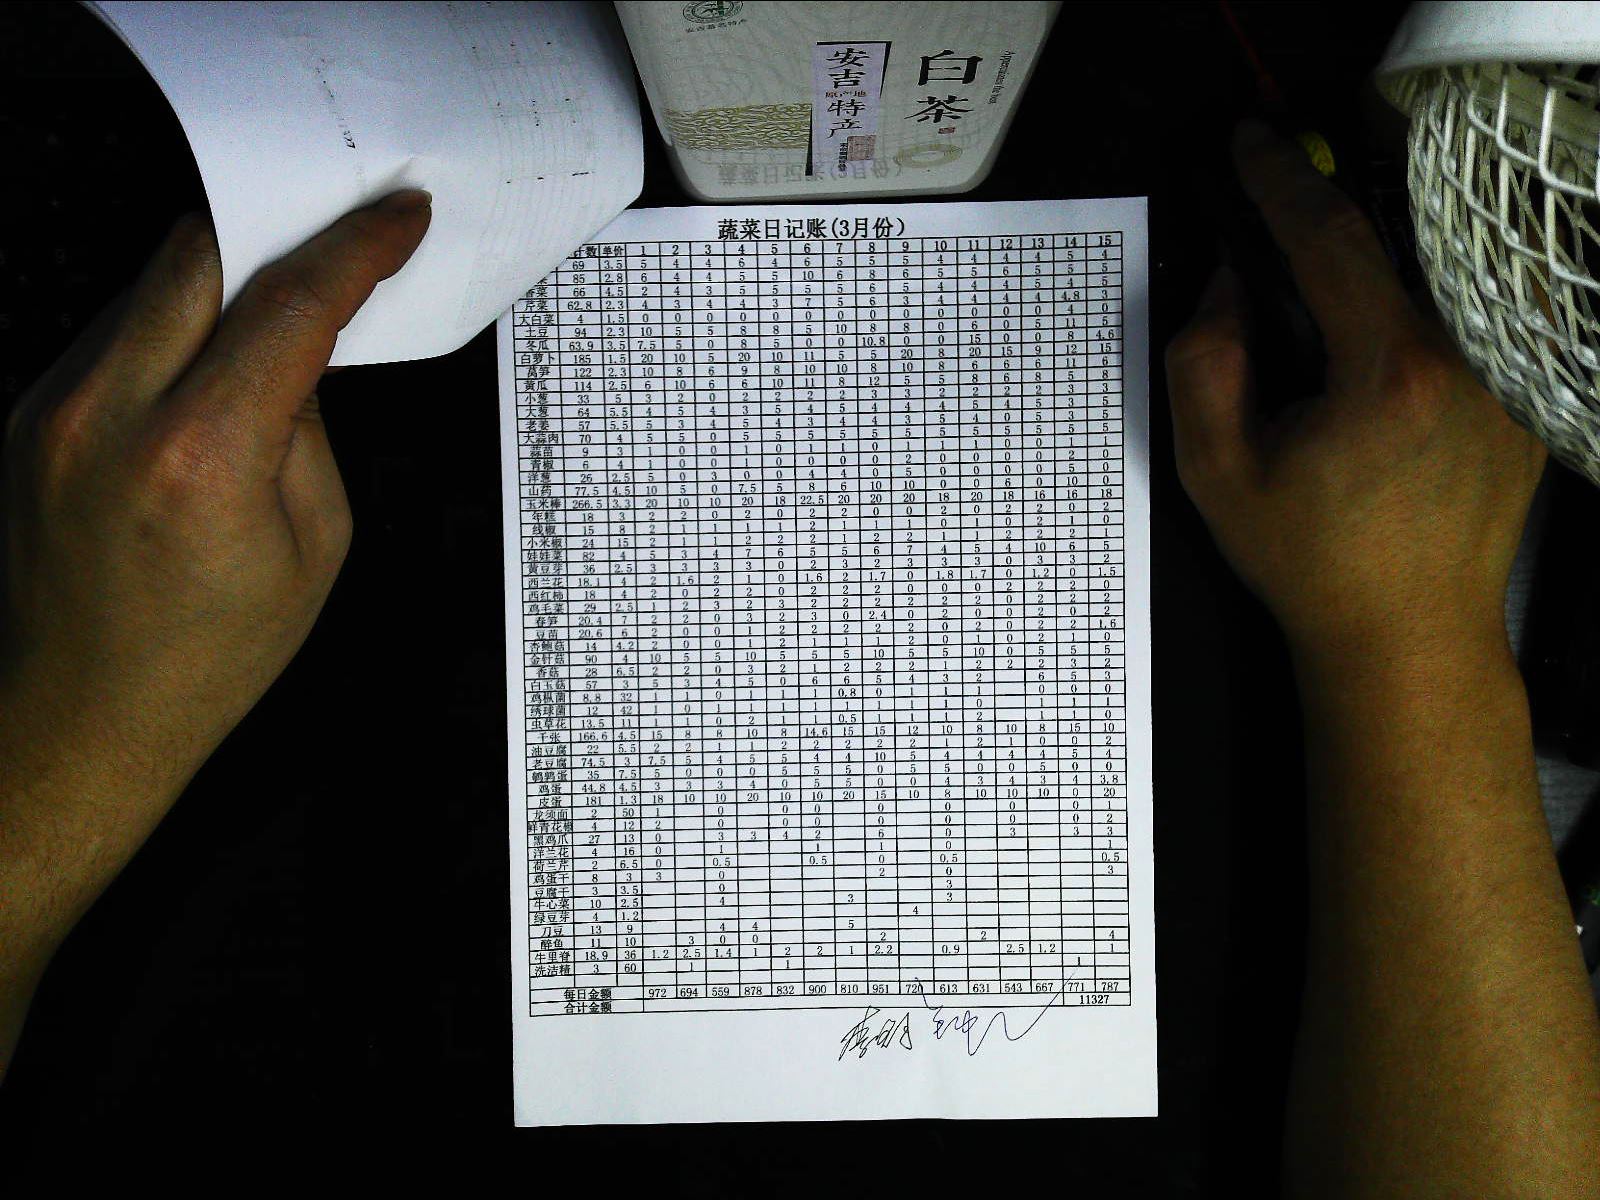 蔬菜日记账(3月份)
计数 单价 1 2 3 4 5 6 7 8 9 10 11 12 13 14 15
69 3.5 5 4 4 6 4 6 5 5 5 4 4 4 4 5 4
菜 85 2.8 6 4 4 5 5 10 6 8 6 5 5 6 5 5 5
香菜 66 4.5 2 4 3 5 5 5 5 6 5 4 4 4 5 4 5
芹菜 62.8 2.3 4 3 4 4 3 7 5 6 3 4 4 4 4 4.8 3
大白菜 4 1.5 0 0 0 0 0 0 0 0 0 0 0 0 0 4 0
土豆 94 2.3 10 5 5 8 8 5 10 8 8 0 6 0 5 11 5
冬瓜 63.9 3.5 7.5 5 0 8 5 0 0 10.8 0 0 15 0 0 8 4.6
白萝卜 185 1.5 20 10 5 20 10 11 5 5 20 8 20 15 9 12 15
莴笋 122 2.3 10 8 6 9 8 10 10 8 10 8 6 6 6 11 6
黄瓜 114 2.5 6 10 6 6 10 11 8 12 5 5 8 6 8 5 8
小葱 33 5 3 2 0 2 2 2 2 3 3 2 2 2 2 3 3
大葱 64 5.5 4 5 4 3 5 4 5 4 4 4 5 4 5 3 5
老姜 57 5.5 5 3 4 5 4 3 4 4 3 5 4 0 5 3 5
大蒜肉 70 4 5 5 0 5 5 5 5 5 5 5 5 5 5 5 5
蒜苗 9 3 1 0 0 1 0 1 1 0 1 1 1 0 0 1 1
青椒 6 4 1 0 0 1 0 0 0 0 2 0 0 0 0 2 0
洋葱 26 2.5 5 0 3 0 0 4 4 0 5 0 0 0 0 5 0
山药 77.5 4.5 10 5 0 7.5 5 8 6 10 10 0 0 6 0 10 0
玉米棒 266.5 3.3 20 10 10 20 18 22.5 20 20 20 18 20 18 16 16 18
年糕 18 3 2 2 0 2 0 2 2 0 0 2 0 2 2 0 2
线椒 15 8 2 1 1 1 1 2 1 1 1 0 1 0 2 1 0
小米椒 24 15 2 1 1 2 2 2 1 2 2 1 1 2 2 2 1
娃娃菜 82 4 5 3 4 7 6 5 5 6 7 4 5 4 10 6 5
黄豆芽 36 2.5 3 3 3 3 0 2 3 2 3 3 3 0 3 3 2
西兰花 18.1 4 2 1.6 2 1 0 1.6 2 1.7 0 1.8 1.7 0 1.2 0 1.5
西红柿 18 4 2 0 2 2 0 2 2 2 0 0 0 2 2 2 0
鸡毛菜 29 2.5 1 2 3 2 3 2 2 2 2 2 2 2 2 2 2
春笋 20.4 7 2 2 0 3 2 3 0 2.4 0 2 0 0 2 0 2
豆苗 20.6 6 2 0 0 1 2 2 2 2 2 0 2 0 2 2 1.6
杏鲍菇 14 4.2 2 0 0 1 2 1 1 1 2 0 1 0 2 1 0
金针菇 90 4 10 5 5 10 5 5 5 10 5 5 10 0 5 5 5
香菇 28 6.5 2 2 0 3 2 1 2 2 2 1 2 2 2 3 2
白玉菇 57 3 5 3 4 5 0 6 6 5 4 3 2 6 5 3
鸡枞菌 8.8 32 1 1 0 1 1 1 0.8 0 1 1 1 0 0 0
绣球菌 12 42 1 0 1 1 1 1 1 1 1 1 0 1 1 1
虫草花 13.5 11 1 1 0 2 1 1 0.5 1 1 1 2 1 1 0
千张 166.6 4.5 15 8 8 10 8 14.6 15 15 12 10 8 10 8 15 10
油豆腐 22 5.5 2 2 1 1 2 2 2 2 2 1 2 1 0 0 2
老豆腐 74.5 3 7.5 5 4 5 5 4 4 10 5 4 4 4 4 5 4
鹌鹑蛋 35 7.5 5 0 0 0 5 5 5 0 5 5 0 0 5 0 0
鸡蛋 44.8 4.5 3 3 3 4 0 5 5 0 0 4 3 4 3 4 3.8
皮蛋 181 1.3 18 10 10 20 10 10 20 15 10 8 10 10 10 0 20
龙须面 2 50 1 0 0 0 0 0 0 0 1
鲜青花椒 4 12 2 0 0 0 0 0 0 0 2
黑鸡爪 27 13 0 3 3 4 2 6 0 3 3 3
洋兰花 4 16 0 1 1 1 0 1
荷兰芹 2 6.5 0 0.5 0.5 0 0.5 0.5
鸡蛋干 8 3 3 0 2 0 3
豆腐干 3 3.5 0 3
牛心菜 10 2.5 4 3 3
绿豆芽 4 1.2 4
刀豆 13 9 4 4 5
醉鱼 11 10 3 0 0 2 2 4
牛里脊 18.9 36 1.2 2.5 1.4 1 2 2 1 2.2 0.9 2.5 1.2 1
洗洁精 3 60 1 1 1
每日金额 972 694 559 878 832 900 810 951 720 613 631 543 667 771 787
合计金额 11327
白茶
安吉
原产地
特产